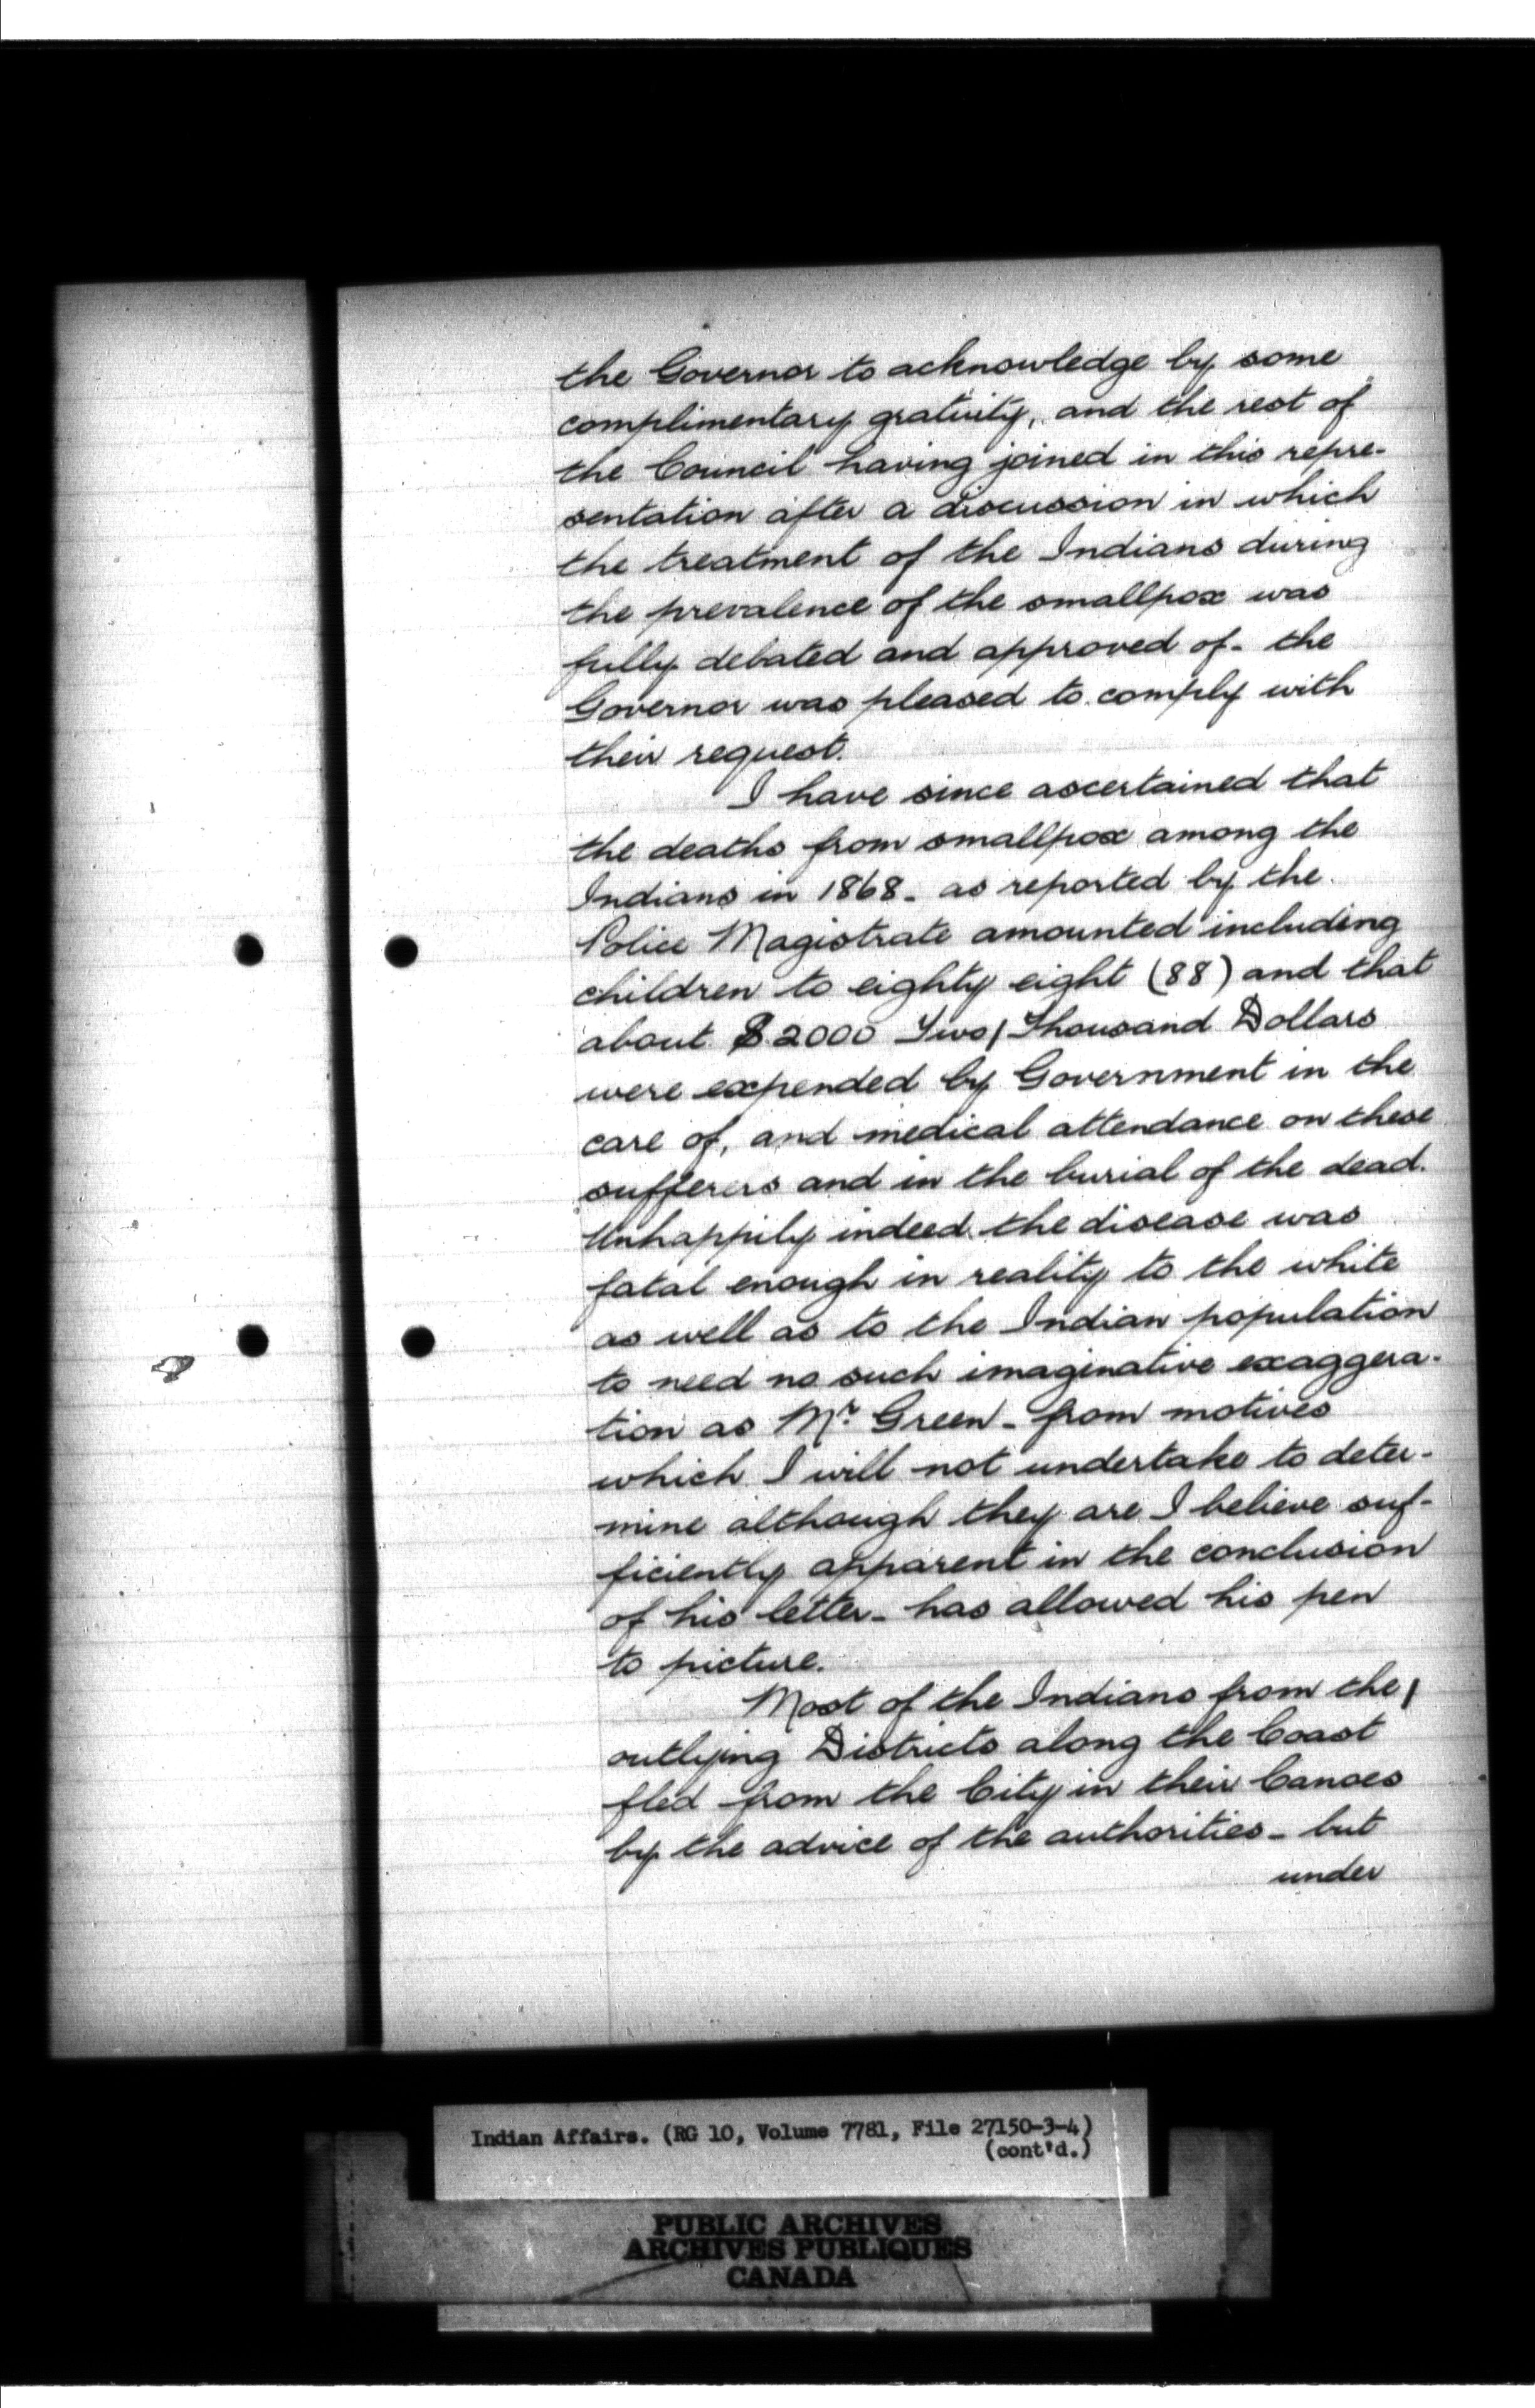 the Governor to acknowledge by some
complimentary gratuity, and the rest of
the Council having joined in this repre-
sentation after a discussion in which
the treatment of the Indians during
the prevalence of the smallpox was
fully debated and approved of - the
Governor was pleased to comply with
their request.
I have since ascertained that
the deaths from smallpox among the
Indians in 1868 - as reported by the
Police Magistrate amounted including
children to eighty eight (88) and that
about $2000 Two/Thousand Dollars
were expended by Government in the
care of, and medical attendance on these
sufferers and in the burial of the dead.
Unhappily indeed the disease was
fatal enough in reality to the white
as well as to the Indian population
to need no such imaginative exaggera-
tion as Mr. Green - from motives
which I will not undertake to deter-
mine although they are I believe suf-
ficiently apparent in the conclusion
of his letter - has allowed his pen
to picture.
Most of the Indians from the
outlying Districts along the Coast
fled from the City in their Canoes
by the advice of the authorities - but
under
Indian Affairs. (RG 10, Volume 7781, File 27150-3-4)
(cont'd.)
PUBLIC ARCHIVES
ARCHIVES PUBLIQUES
CANADA